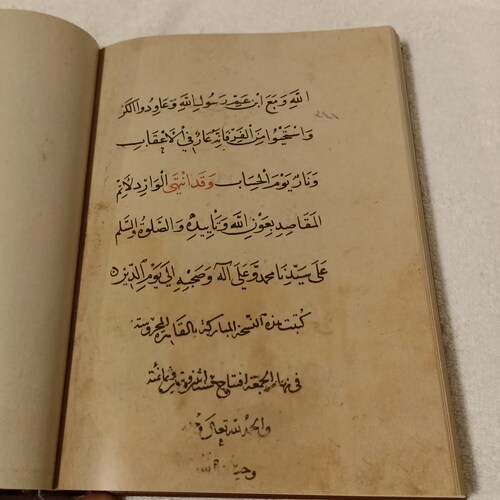 الله ومع ابن عم رسول الله وعاودوا الكر
٣٤١
واستحيوا من الفر فانه عار في الاعقاب
ونار يوم الحساب وقد انتهى الوارد لاتم
المقاصد بعون الله وتاييده والصلوة والسلم
على سيدنا محمد وعلى آله وصحبه الى يوم الدين
كتبت هذه النسخة المباركة بالقاهرة المحروسة
في نهار الجمعة افتتاح
والحمد لله تعالى